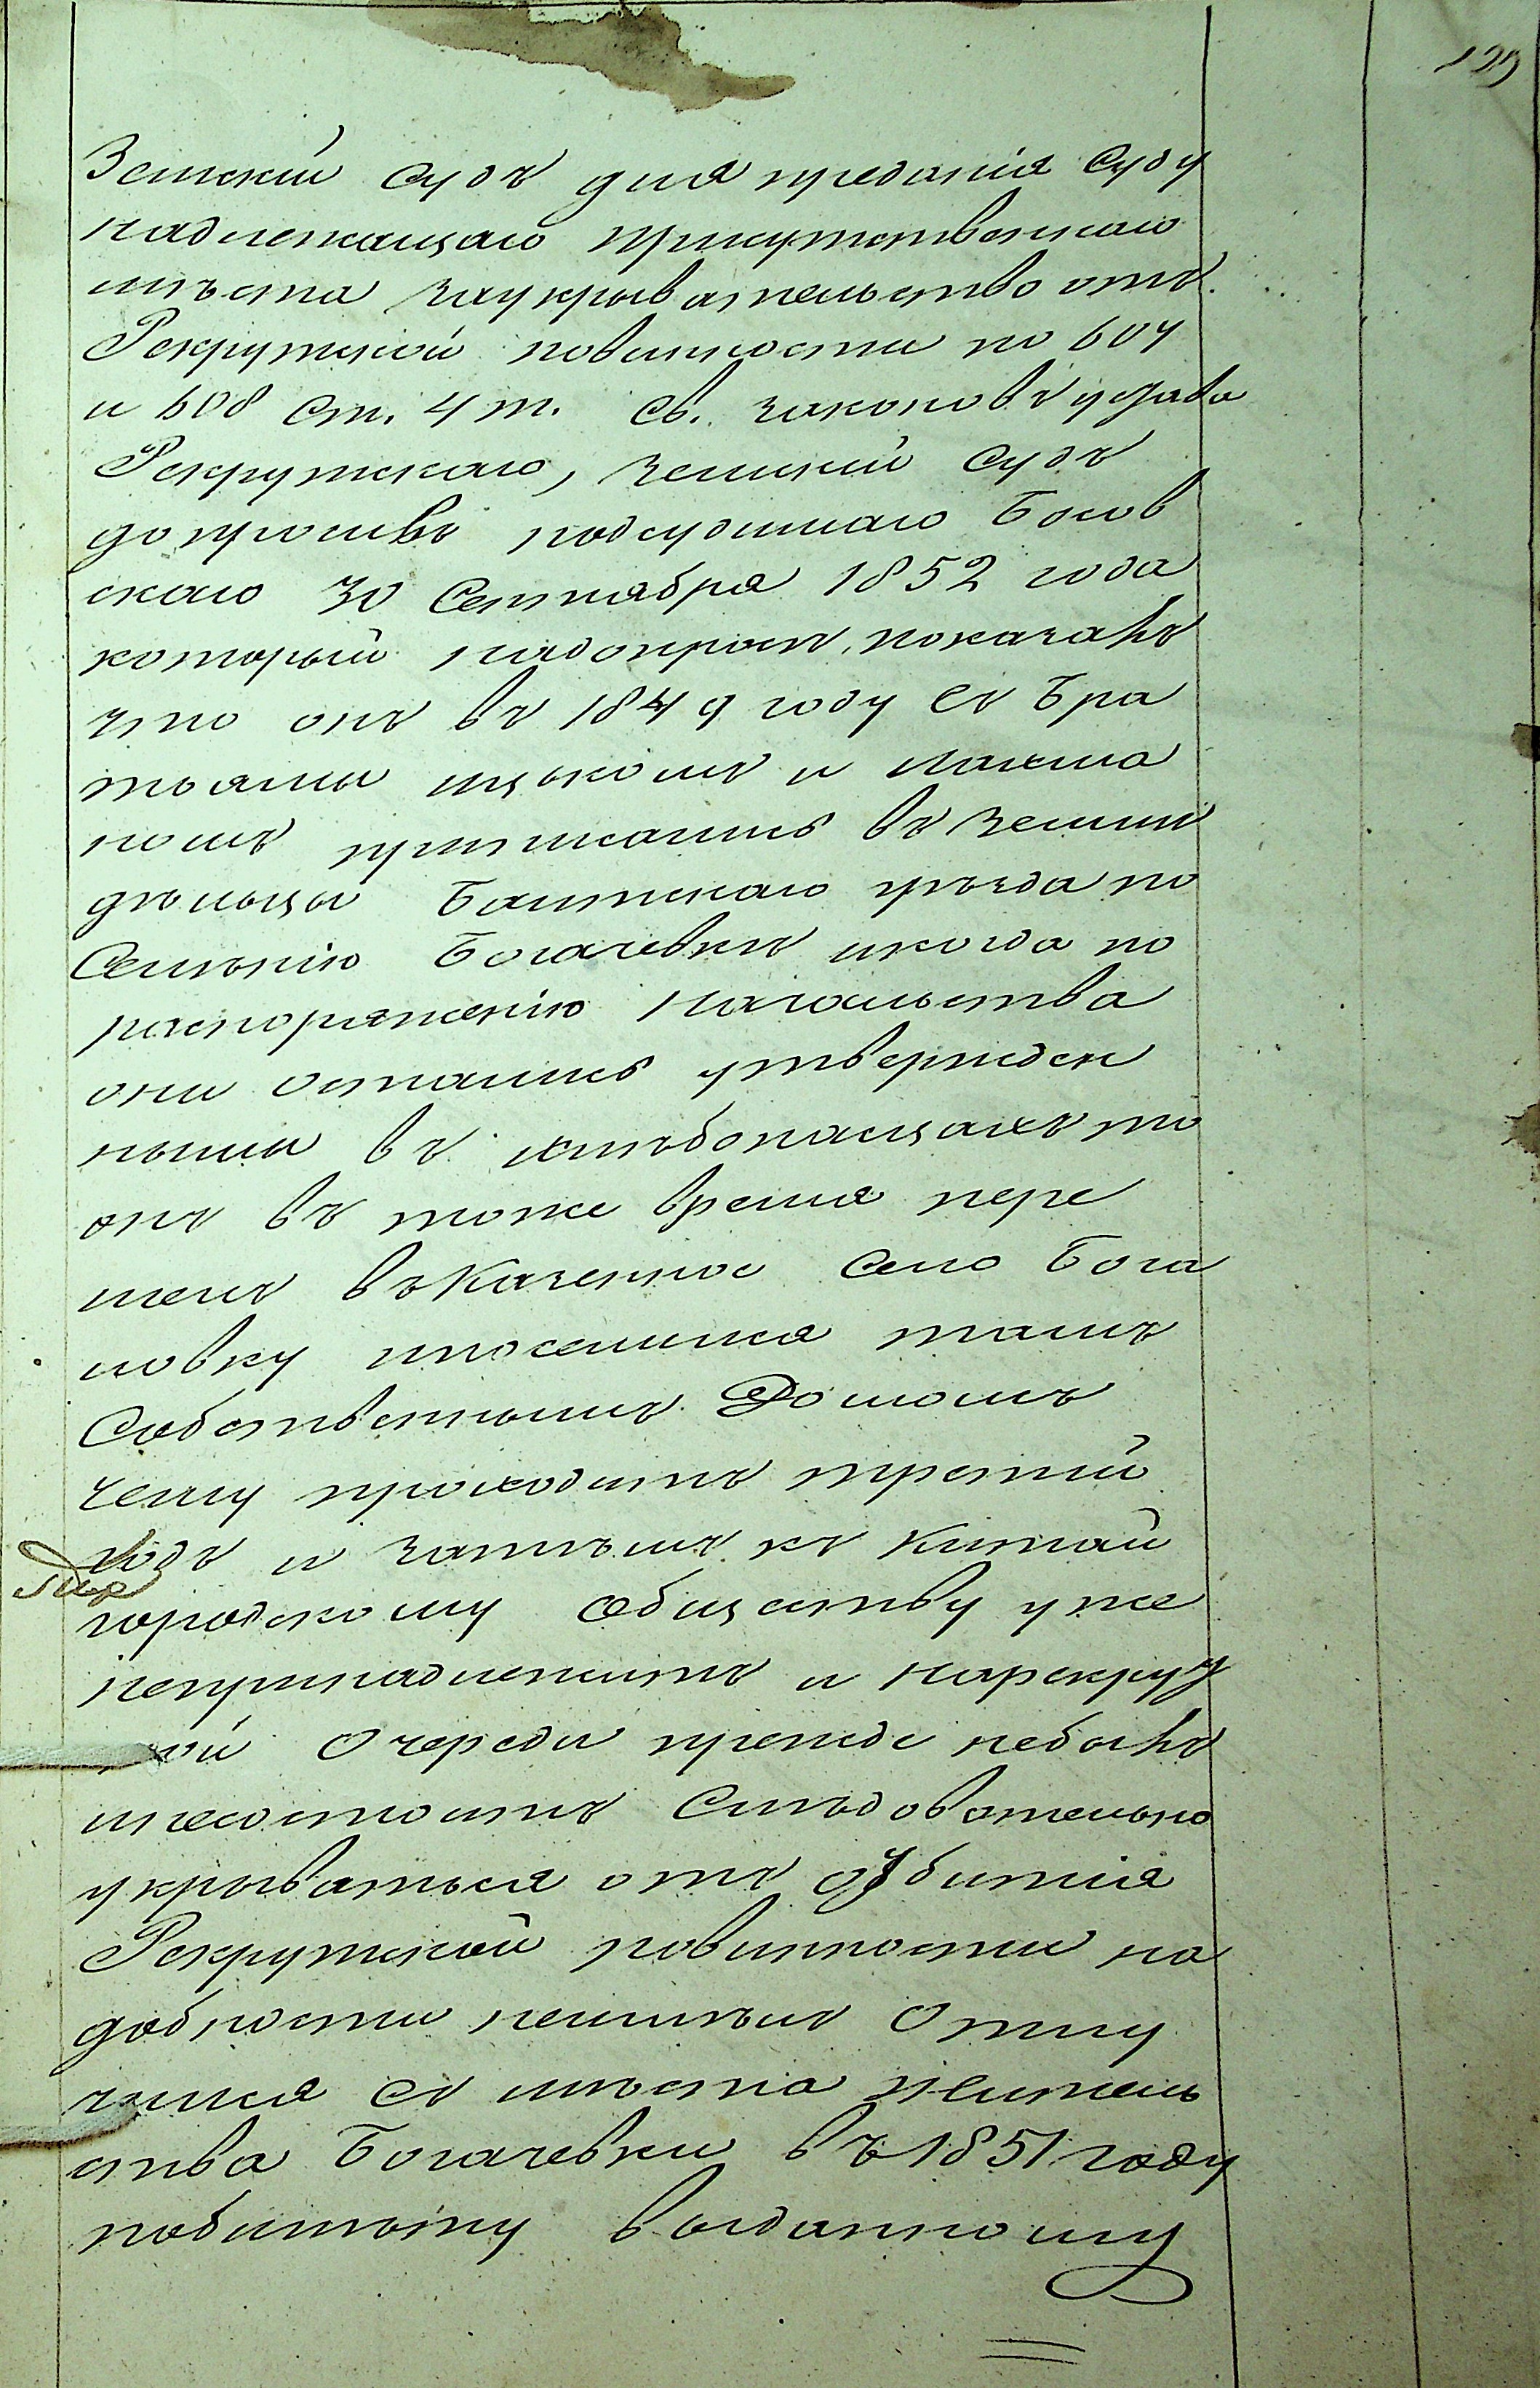 129
Земскій Судъ для преданія Суду
надлежащаго присутственнаго
мѣста заукрывательство отъ
Рекрутской повинности по 604
и 608 ст. 4 т. Св. законовъ устава
Рекрутскаго, земскій Судъ
допросивъ подсудимаго Босов
скаго 30 Сентября 1852 года
который надопросъ показалъ
что онъ въ 1849 году съ Бра
тьями Ицькомъ и Лахма
номъ приписались въ земли
дѣльцы Балтскаго уѣзда по
Селенію Богачевкѣ икогда по
распоряженію Начальства
они остались утвержден
ными въ хлѣбопащахъ то
онъ въ тоже время пере
шелъ въ Казенное Село Бога
човку ипоселился тамъ
Собственнымъ Домомъ
чему проходитъ третій
годъ и затѣмъ къ Китай
городскому Обществу уже
непринадлежитъ и нарекрут
ской Очереди прежде небылъ
инесостоитъ Слѣдовательно
укрываться отъ отбытія
Рекрутской повинности на
добности неимѣлъ Отлу
чился съ мѣста житель
ства Богачевки въ 1851 году
побилѣту выданному